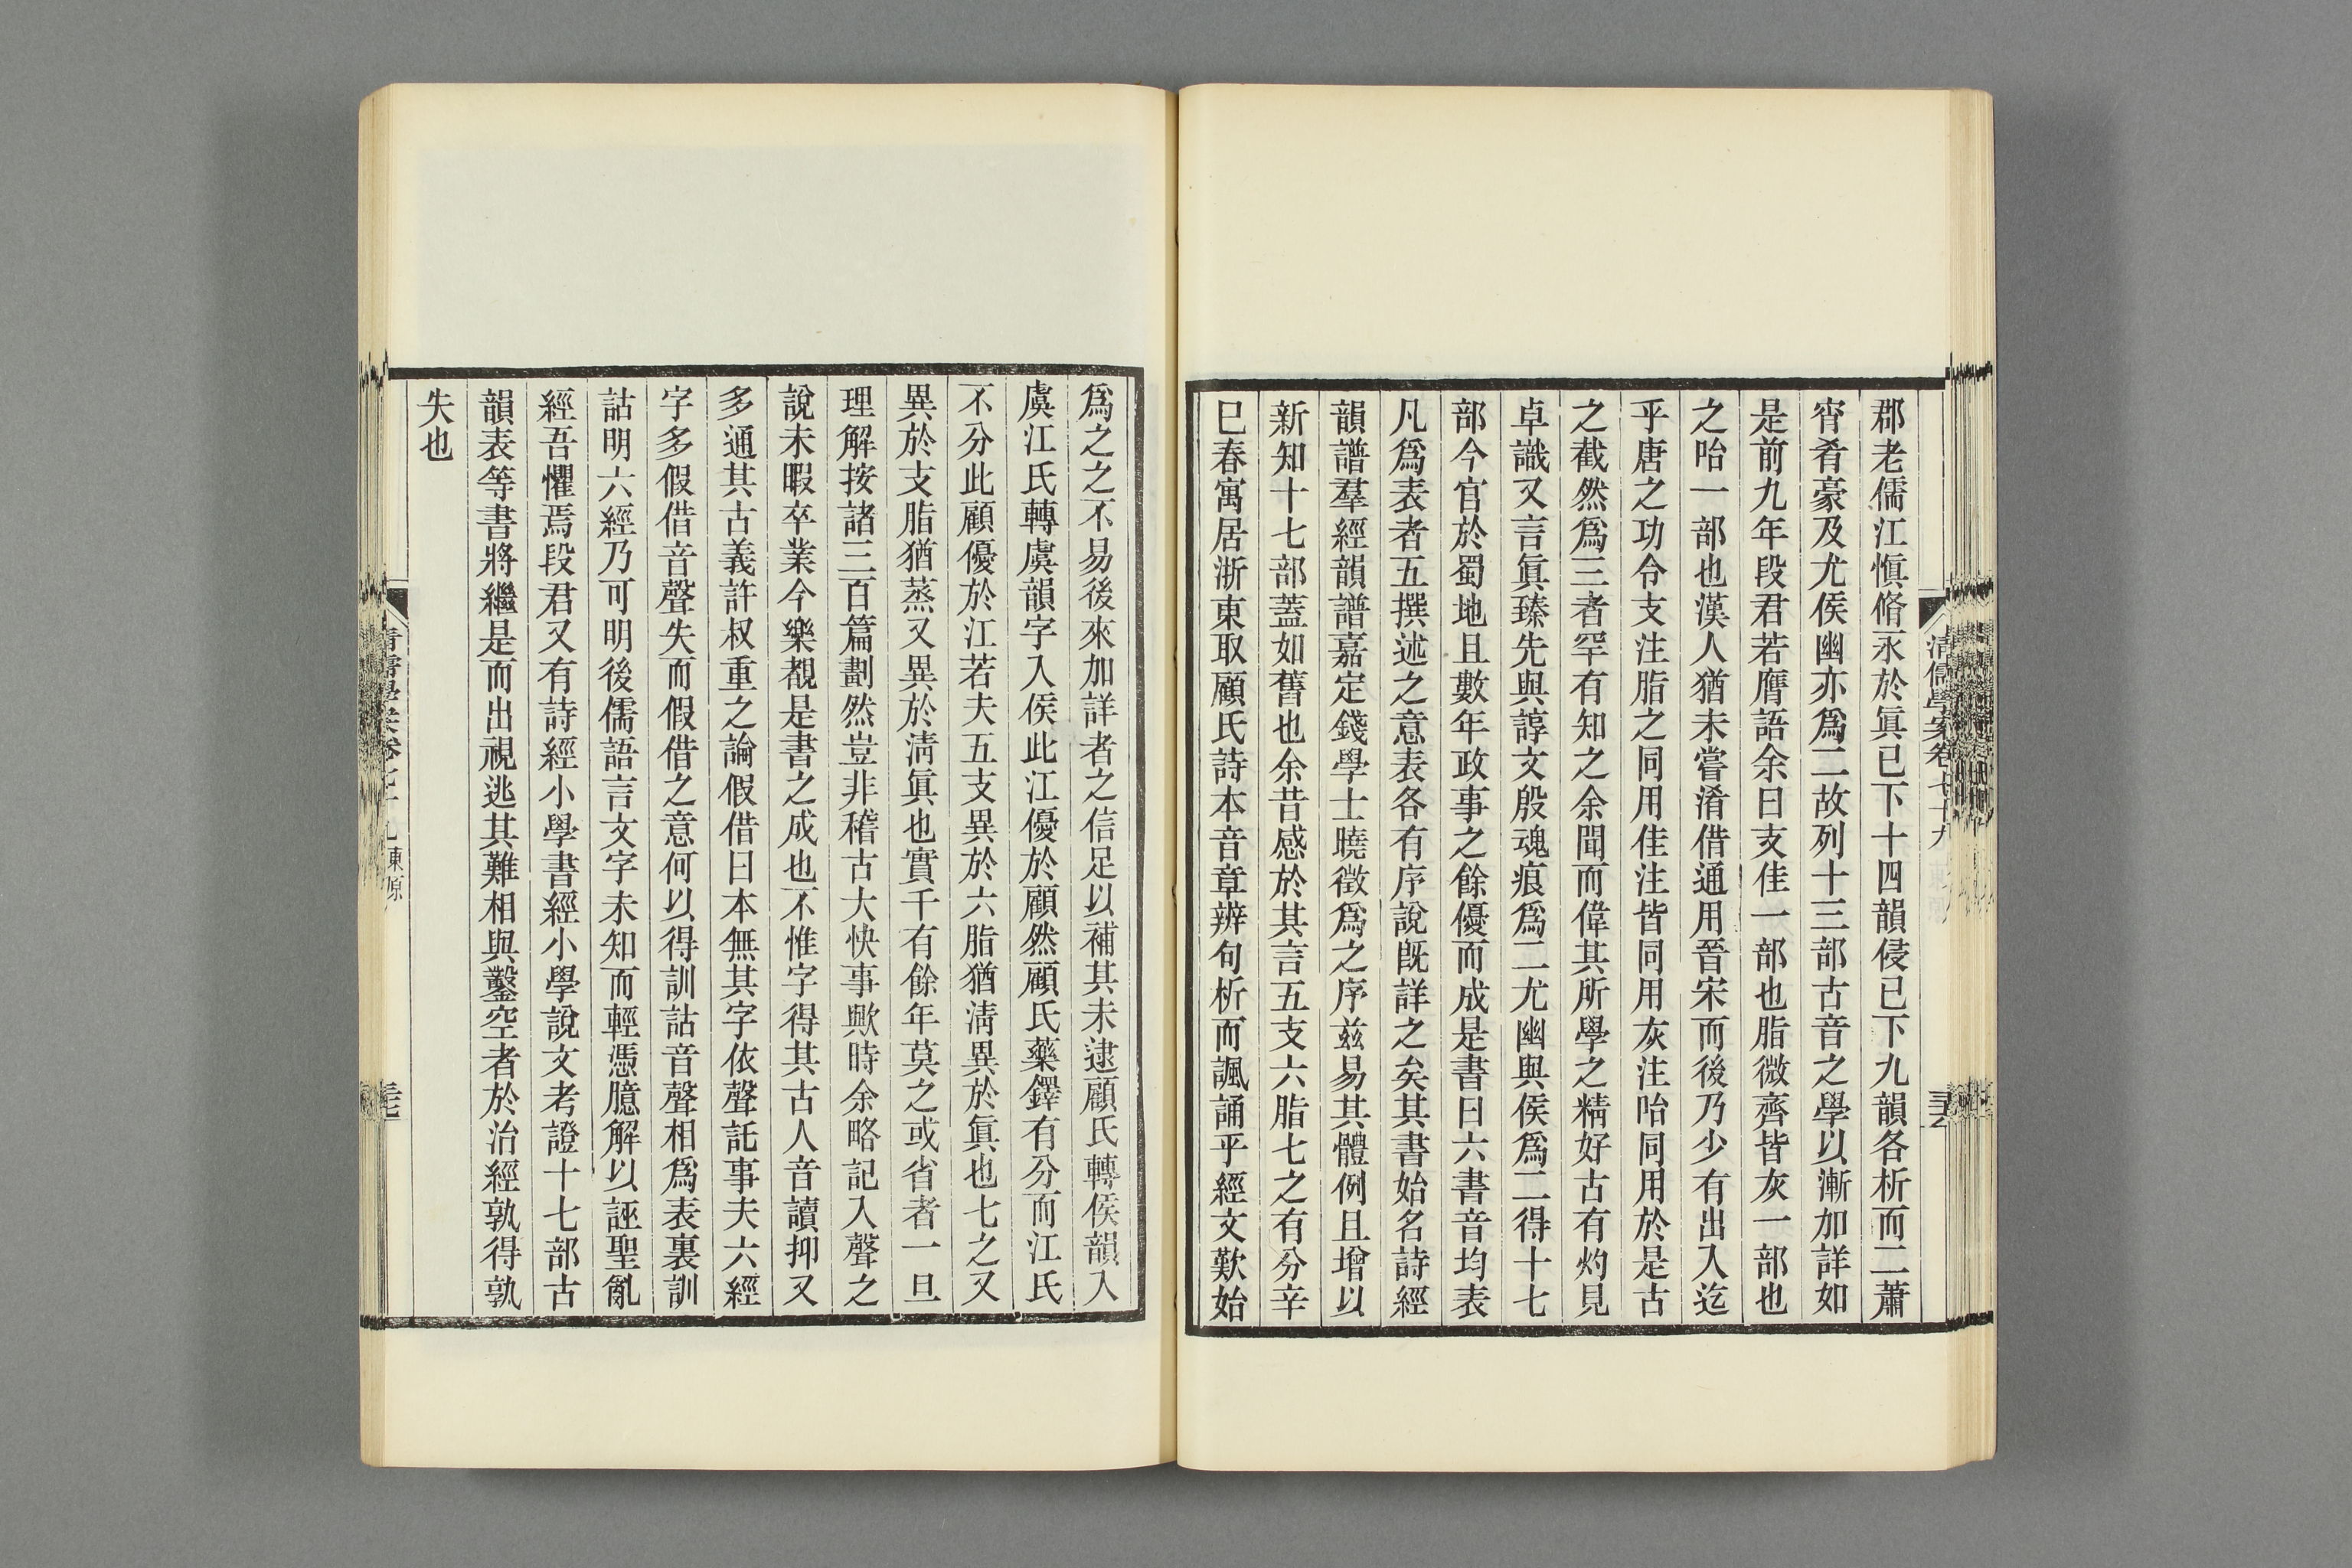 郡老儒江愼脩永於眞已下十四韻侵已下九韻各析而二蕭
宵肴豪及尤侯幽亦爲二故列十三部古音之學以漸加詳如
是前九年段君若膺語余曰支佳一部也脂微齊皆灰一部也
之咍一部也漢人猶未嘗淆借通用晉宋而後乃少有出入迄
乎唐之功令支注脂之同用佳注皆同用灰注咍同用於是古
之截然爲三者罕有知之余聞而偉其所學之精好古有灼見
卓識又言眞臻先與諄文殷魂痕爲二尤幽與侯爲二得十七
部今官於蜀地且數年政事之餘優而成是書曰六書音均表
凡爲表者五撰述之意表各有序說旣詳之矣其書始名詩經
韻譜羣經韻譜嘉定錢學士曉徵爲之序茲易其體例且增以
新知十七部蓋如舊也余昔感於其言五支六脂七之有分辛
巳春寓居浙東取顧氏詩本音章辨句析而諷誦乎經文歎始
清儒學案卷七十九
爲之之不易後來加詳者之信足以補其未逮顧氏轉侯韻入
虞江氏轉虞韻字入侯此江優於顧然顧氏藥鐸有分而江氏
不分此顧優於江若夫五支異於六脂猶淸異於眞也七之又
異於支脂猶蒸又異於淸眞也實千有餘年莫之或省者一旦
理解按諸三百篇劃然豈非稽古大快事歟時余略記入聲之
說未暇卒業今樂覩是書之成也不惟字得其古人音讀抑又
多通其古義許叔重之論假借曰本無其字依聲託事夫六經
字多假借音聲失而假借之意何以得訓詁音聲相爲表裏訓
詁明六經乃可明後儒語言文字未知而輕憑臆解以誣聖亂
經吾懼焉段君又有詩經小學書經小學說文考證十七部古
韻表等書將繼是而出視逃其難相與鑿空者於治經孰得孰
失也
東原